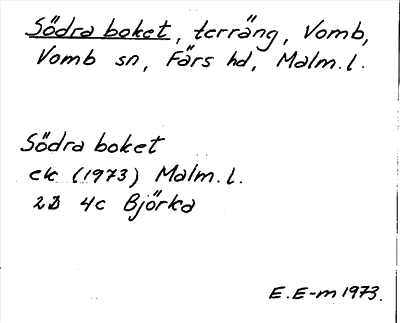 Södra boket, terräng, Vomb,
Vomb sn, Färs hd, Malm.l.
Södra boket
ek (1973) Malm.l.
2D 4c Björka
E.E-m 1973.